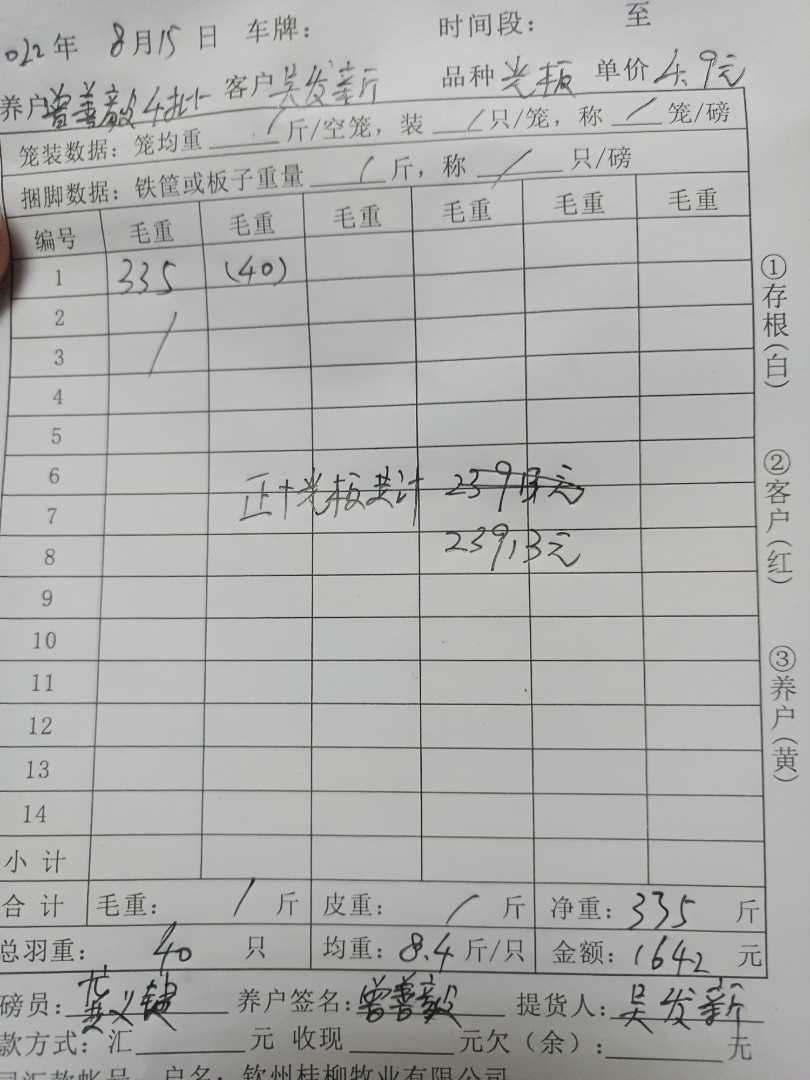 2022年 8月15日 车牌: 时间段: 至
养户 曾善毅4批 客户 吴发新 品种 光板 单价 4.9元
笼装数据: 笼均重 / 斤/空笼, 装 / 只/笼, 称 / 笼/磅
捆脚数据: 铁筐或板子重量 / 斤, 称 / 只/磅
编号 毛重 毛重 毛重 毛重 毛重 毛重
1 335 (40)
2 /
3
4
5
6
正+光板共计 23913元
7
23913元
8
9
10
11
12
13
14
小计
合计 毛重: / 斤 皮重: / 斤 净重: 335 斤
总羽重: 40 只 均重: 8.4 斤/只 金额: 1642 元
磅员: 养户签名: 曾善毅 提货人: 吴发新
款方式: 汇 元 收现 元欠(余): 元
汇款帐号 户名: 钦州桂柳牧业有限公司
①存根(白)
②客户(红)
③养户(黄)